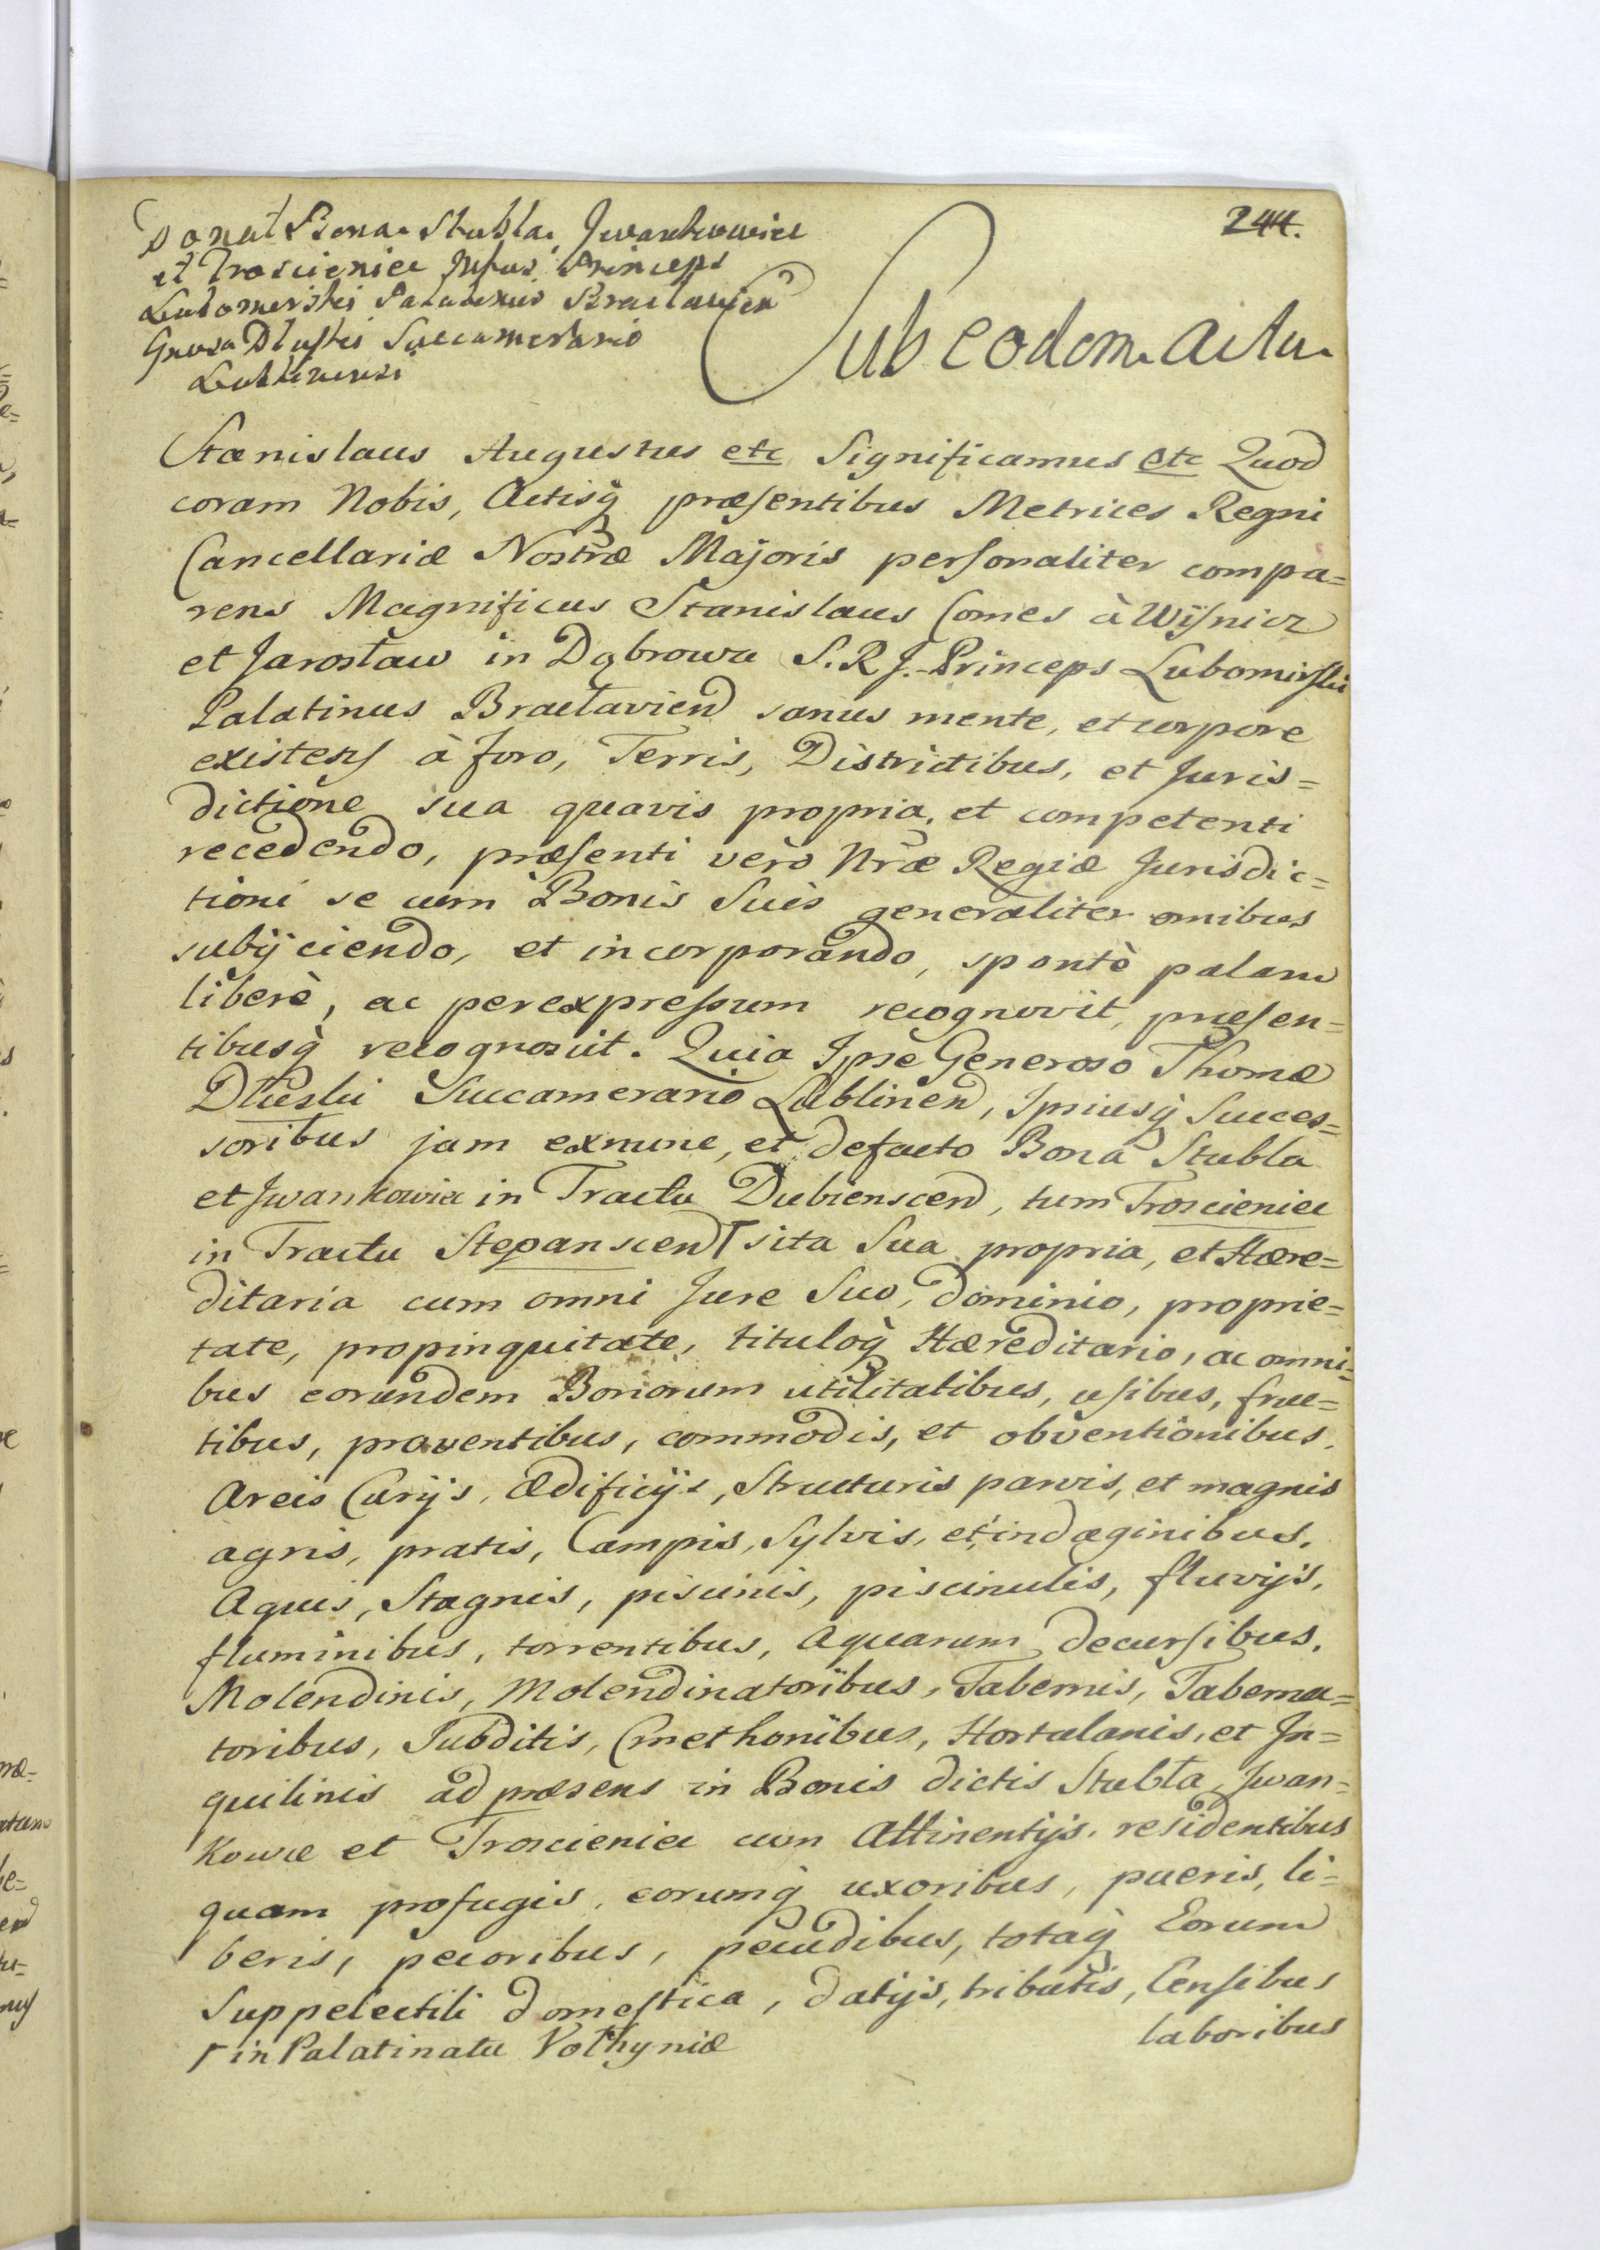 244.
Donat Bona Stubla, Jwankowice
et Troscieniec Princeps
Lubomirski Palatinus Braclavien
Gnoso Dluski Succamerario
Lublinensi
Sub eodem actu
Stanislaus Augustus etc Significamus etc Quod
coram Nobis, Actisq̃ præsentibus Metrices Regni
Cancellariæ Nostræ Majoris personaliter compa=
rens Magnificus Stanislaus Comes à Wiʃnicz
et Jarosław in Dąbrowa S. R J. Princeps Lubomirski
Palatinus Braclavien sanus mente, et corpore
existens à foro, Terris, Districtibus, et Juris=
dictione sua quavis propria, et competenti
recedendo, præsenti vero Nr̃æ Regiæ Jurisdic=
tioni se cum Bonis Suis generaliter omibus
subijciendo, et incorporando, spontè palam
liberè, ac per expressum recognovit, præsen=
tibusq̃ recognoscit. Quia Ipse Generoso Thomæ
Dłuski Succamerario Lublinen, Ipsiusq̃ Succes=
soribus jam exnunc, et defacto Bona Stubla
et Jwankowice in Tractu Dubienscen, tum Troscieniec
in Tractu Stepanscen ┌ sita Sua propria, et Hære=
ditaria cum omni Jure Suo, dominio, proprie=
tate, propinquitate, tituloq̃ Hæreditario, ac omni=
bus eorundem Bonorum utilitatibus, usibus, fruc=
tibus, proventibus, commodis, et obventionibus,
Areis Curijs, Ædificijs, Structuris parvis, et magnis
agris, pratis, Campis, Sylvis, et indaginibus,
Aquis, Stagnis, piscinis, piscinulis, fluvijs,
fluminibus, torrentibus, Aquarum decursibus,
Molendinis, Molendinatoribus, Tabernis, Taberna=
toribus, Subditis, Cmethonibus, Hortulanis, et In=
quilinis ad præsens in Bonis dictis Stubła, Jwan=
kowce et Troscieniec cum Attinentijs residentibus
quam profugis, eorumq̃ uxoribus, pueris, li=
beris, pecoribus, pecudibus, totaq̃ Eorum
Suppelectili domestica, datijs, tributis, Censibus
┌ in Palatinatu Volhyniæ
laboribus